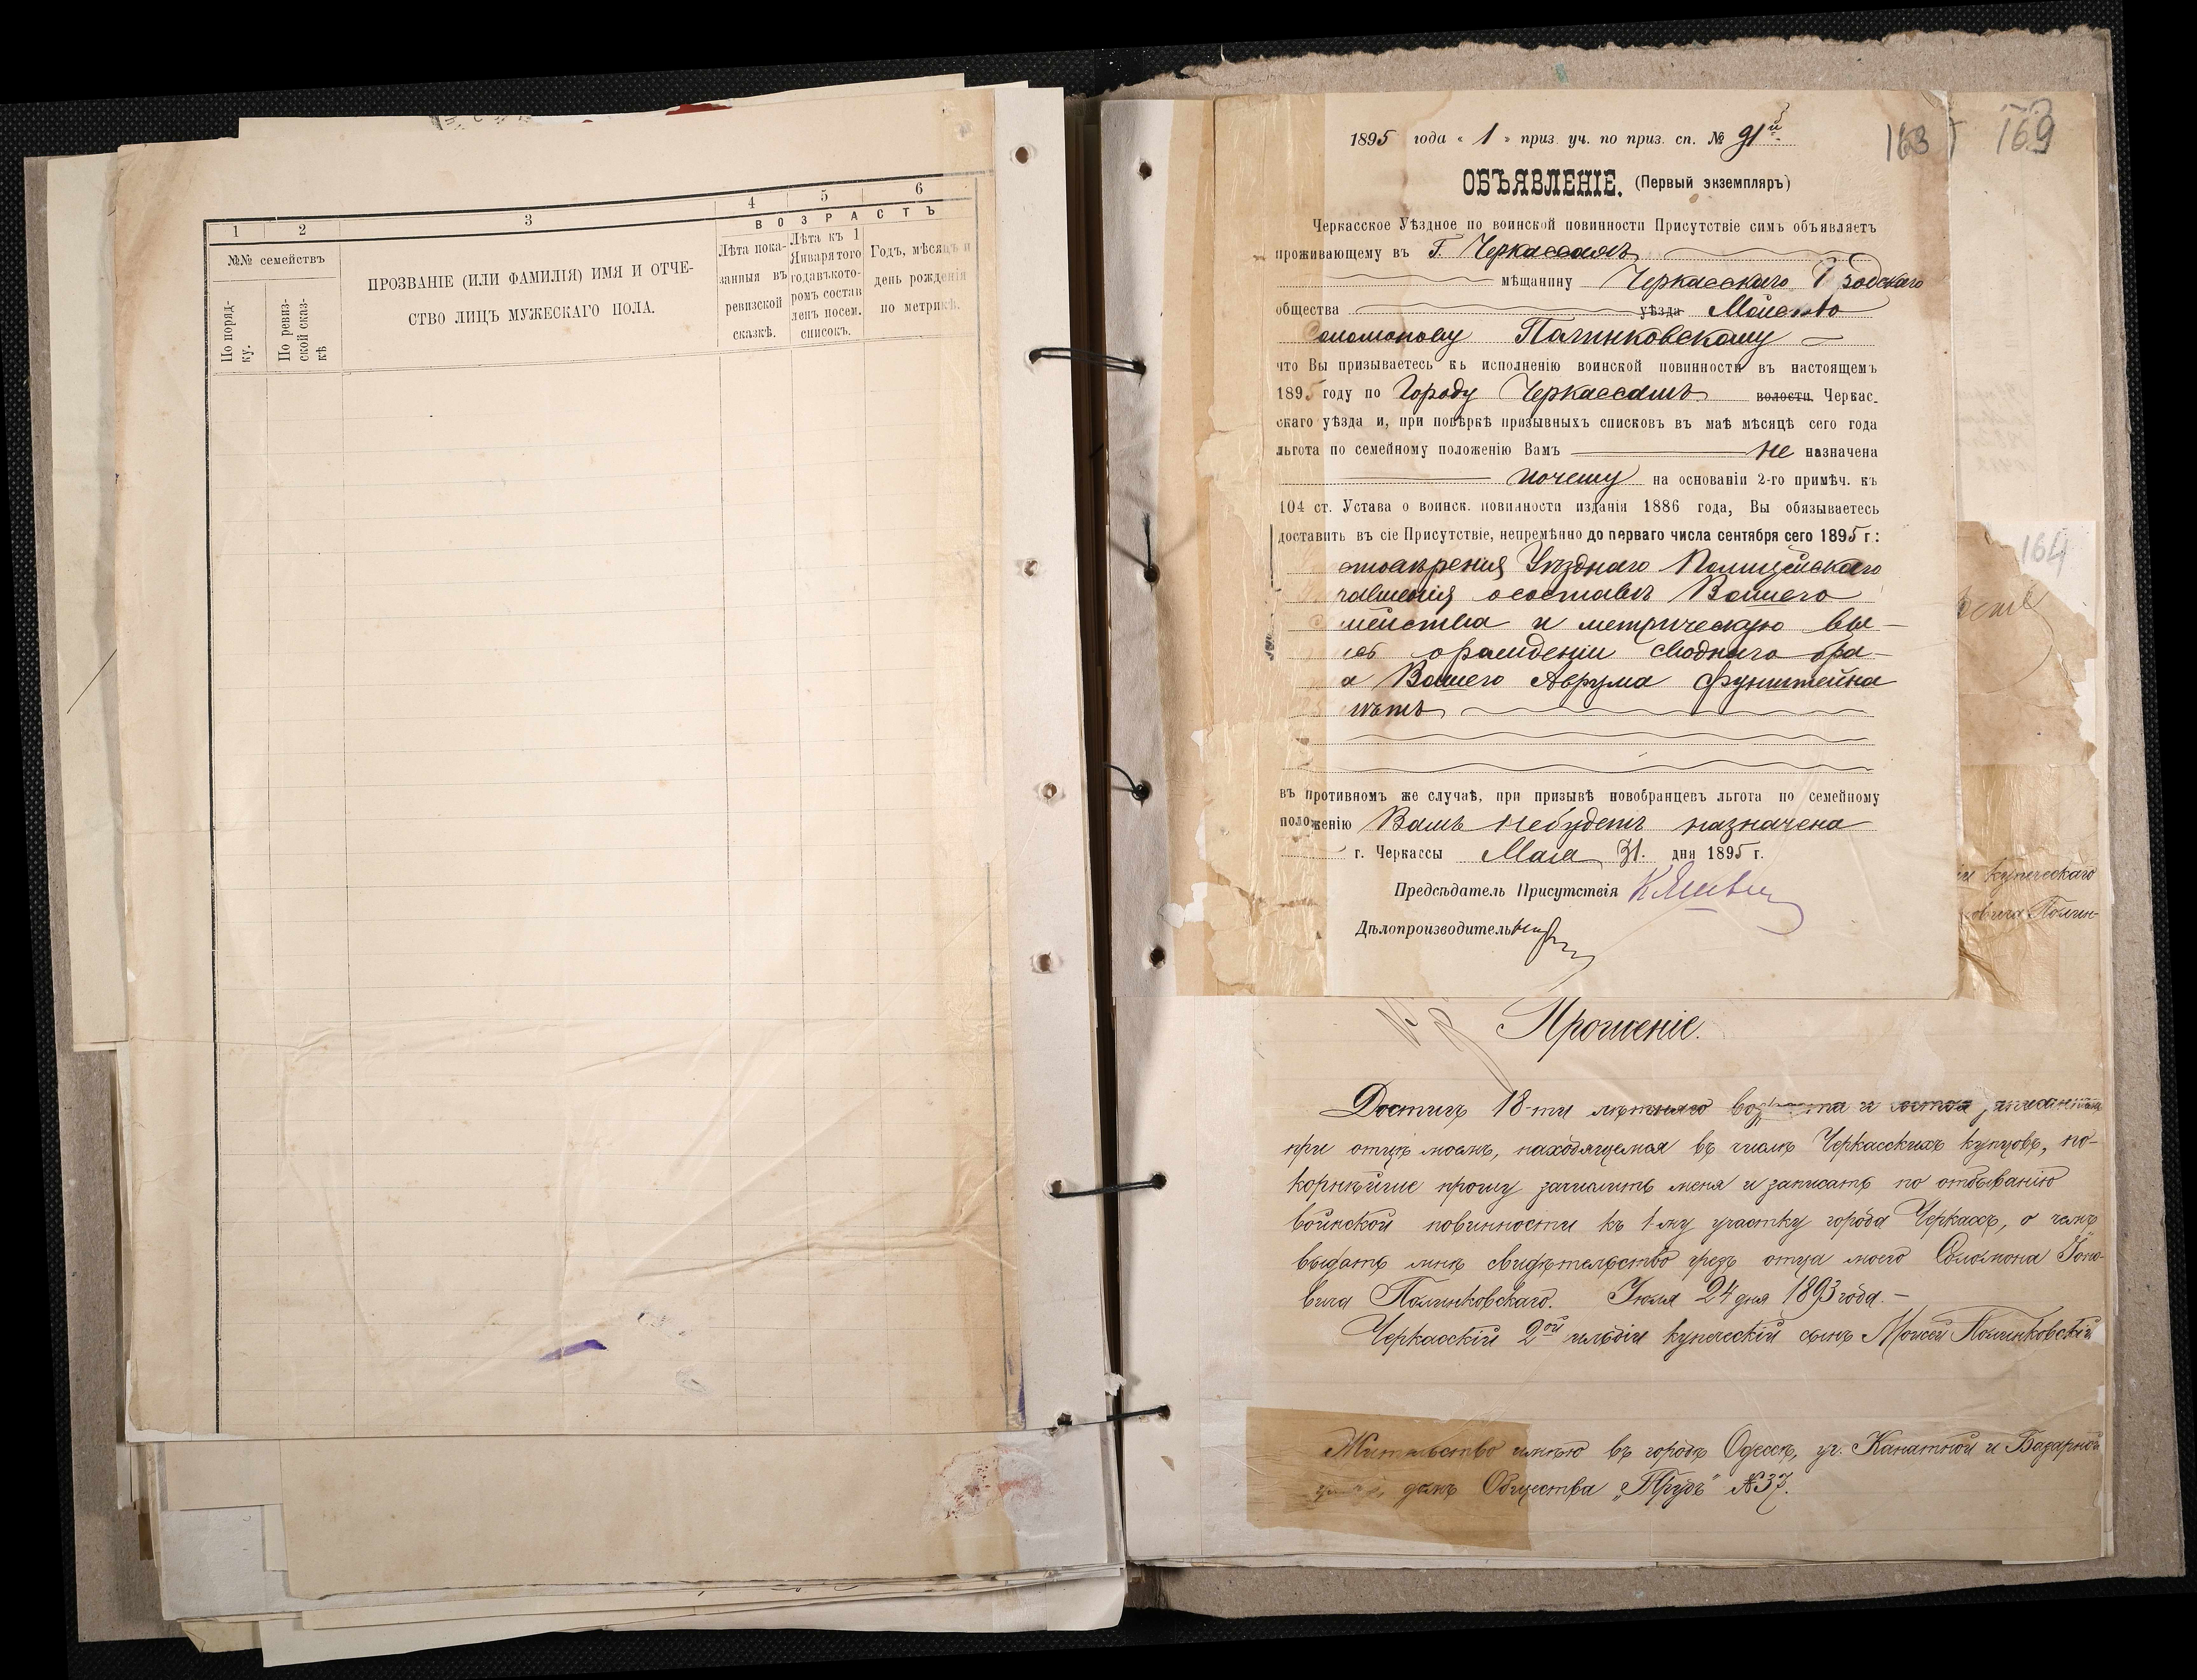 1 2 3 4 5 6
№№ семействъ
По поряд-
ку.
По ревиз-
ской сказ-
кѣ
ПРОЗВАНІЕ (ИЛИ ФАМИЛІЯ) ИМЯ И ОТЧЕ-
СТВО ЛИЦЪ МУЖЕСКАГО ПОЛА.
ВОЗРАСТЪ
Лѣта пока-
занныя въ
ревизской
сказкѣ.
Лѣта къ 1
Января того
года въ кото-
ромъ состав
ленъ посем.
списокъ.
Годъ, мѣсяцъ и
день рожденія
по метрикѣ.
163 169
1895 года « 1 » приз. уч. по приз. сп. № 91й
ОБЪЯВЛЕНІЕ. (Первый экземпляръ)
Черкасское Уѣздное по воинской повинности Присутствіе симъ объявляетъ
проживающему въ Г. Черкассахъ
мѣщанину Черкасскаго
общества уѣзда
Полинковскому
что Вы призываетесь къ исполненію воинской повинности въ настоящемъ
1895 году по Городу Черкассамъ волости Черкас-
скаго уѣзда и, при повѣркѣ призывныхъ списковъ въ маѣ мѣсяцѣ сего года
льгота по семейному положенію Вамъ не назначена
почему на основаніи 2-го примѣч. къ
104 ст. Устава о воинск. повинности изданія 1886 года, Вы обязываетесь
доставить въ сіе Присутствіе, непремѣнно до перваго числа сентября сего 1895 г.:
Уѣзднаго Полицейскаго
о составѣ Вашего
и метрическую вы-
о рожденіи своднаго бра-
Вашего Аврума Фунштейна
въ противномъ же случаѣ, при призывѣ новобранцевъ льгота по семейному
положенію Вамъ не будетъ назначена
г. Черкассы Мая 31. дня 1895 г.
Предсѣдатель Присутствія
Дѣлопроизводитель
164
купеческаго
Полин-
Прошеніе.
Достигъ 18-ти лѣтняго возраста и
при отцѣ моемъ, находящемся въ числѣ Черкасскихъ купцовъ, по-
корнѣйше прошу зачислить меня и записать по отбыванію
воинской повинности къ 1-му участку города Черкассъ, о чемъ
выдать мнѣ свидѣтельство чрезъ отца моего Соломона
вича Полинковскаго. Іюля 24 дня 1893 года.-
Черкасскій 2ой гильдіи купеческій сынъ Моисей Полинковскій
Жительство имѣю въ городѣ Одессѣ, уг. Канатной и Базарной
домъ Общества „Трудъ" №37.